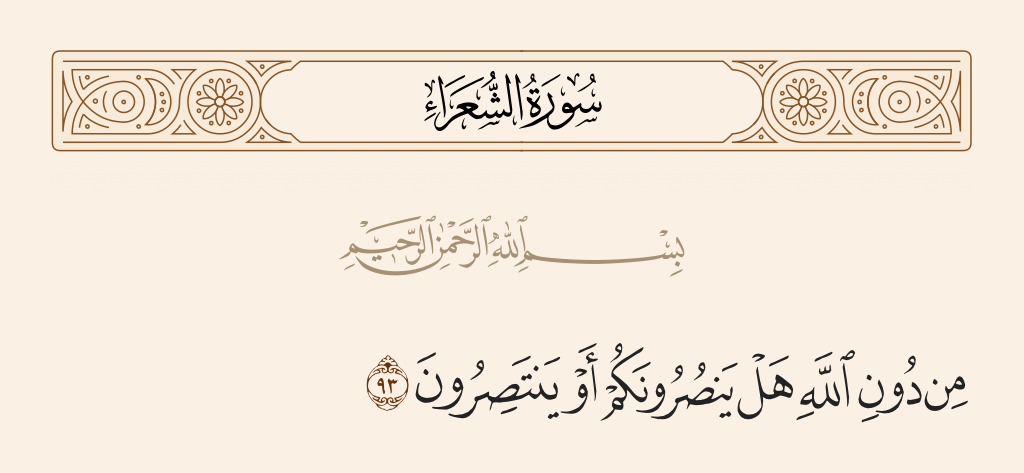 سُورَةُ الشُّعَرَاءِ
بِسْمِ ٱللَّهِ ٱلرَّحْمَٰنِ ٱلرَّحِيمِ
مِن دُونِ ٱللَّهِ هَلْ يَنصُرُونَكُمْ أَوْ يَنتَصِرُونَ ٩٣